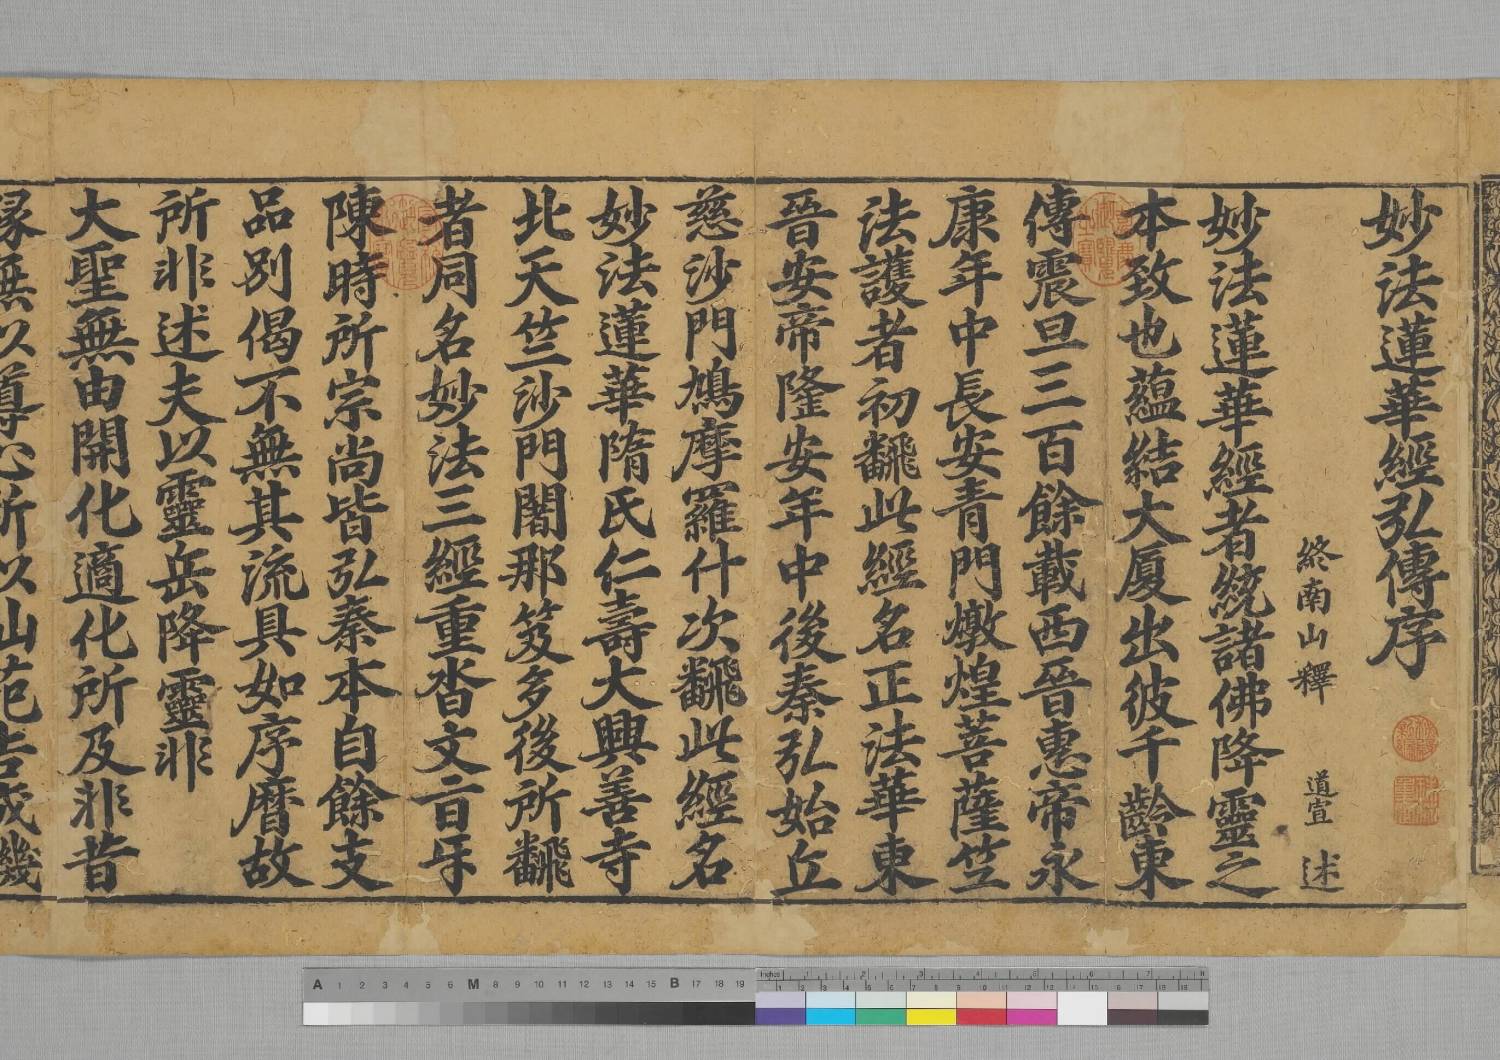 妙法蓮華經弘傳序
終南山釋 道宣 述
妙法蓮華經者統諸佛降靈之
本致也蘊結大厦出彼千齡東
傳震旦三百餘載西晉惠帝永
康年中長安青門燉煌菩薩竺
法護者初飜此經名正法華東
晉安帝隆安年中後秦弘始丘
慈沙門鳩摩羅什次飜此經名
妙法蓮華隋氏仁壽大興善寺
北天竺沙門闍那笈多後所飜
者同名妙法三經重沓文旨互
陳時所宗尚皆弘秦本自餘支
品別偈不無其流具如序曆故
所非述夫以靈岳降靈非
大聖無由開化適化所及非昔
縁無以導心所以仙苑告成機
A 1 2 3 4 5 6 M 8 9 10 11 12 13 14 15 B 17 18 19
Inches 1 2 3 4 5 6 7 8